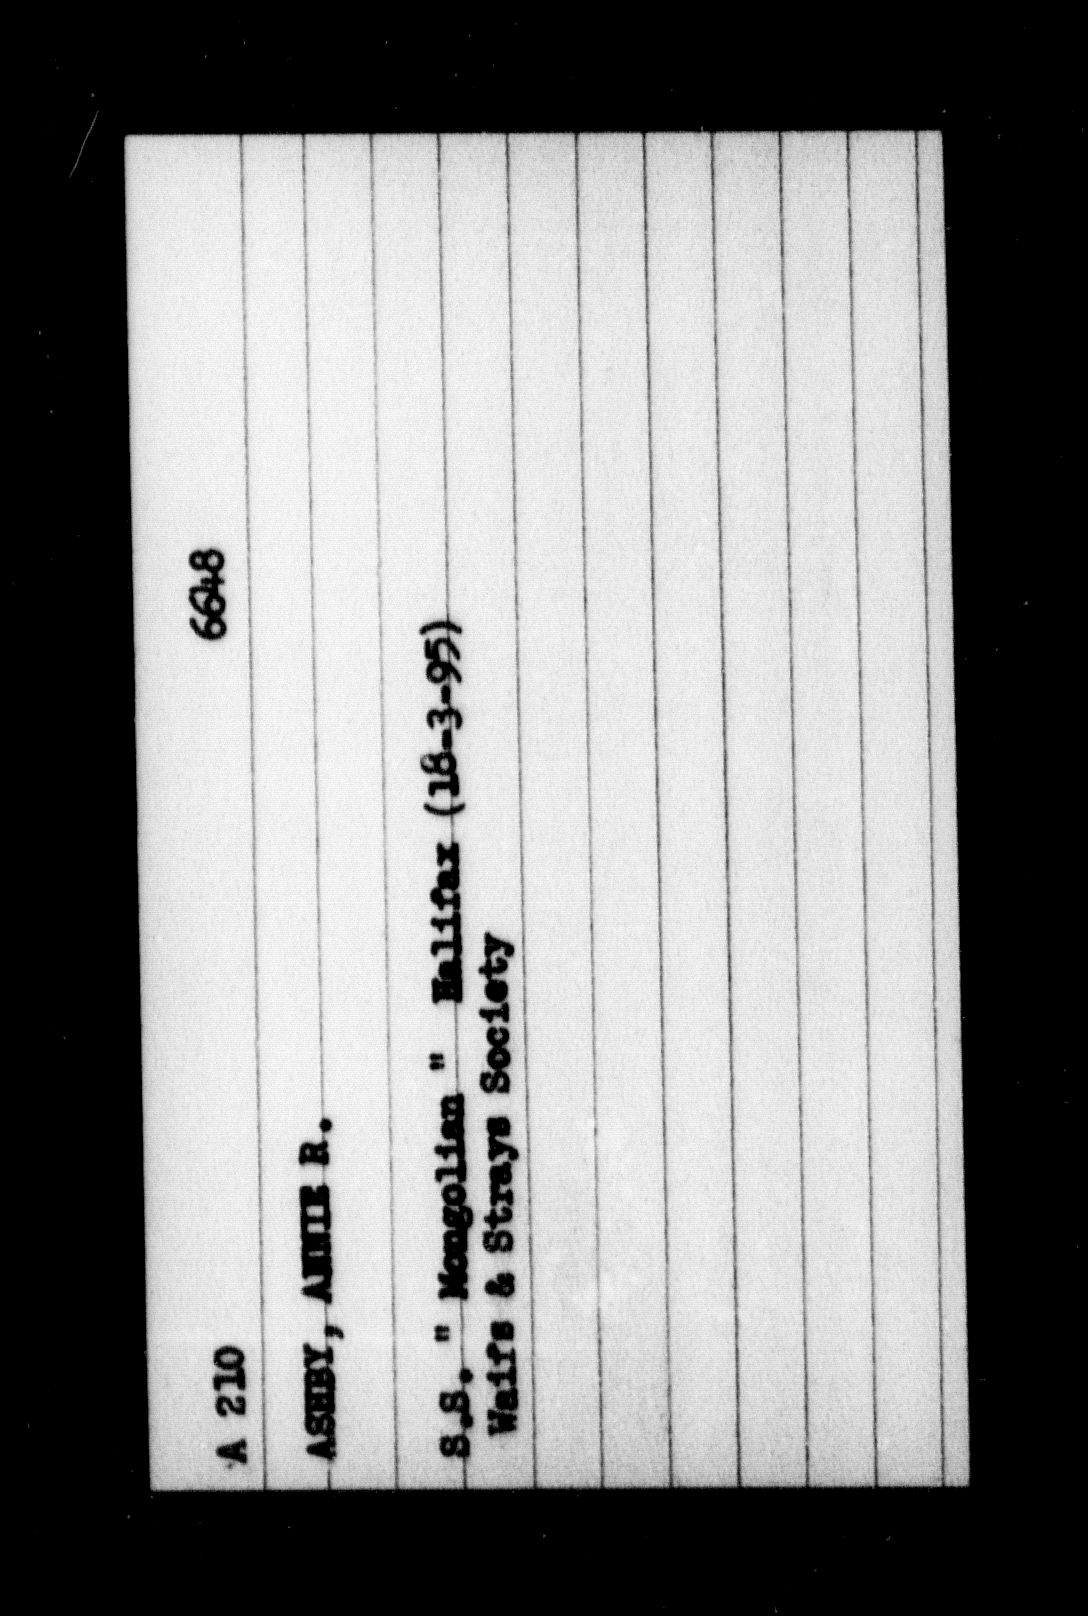 A 210 6648
ASHBY, ANNIE R.
S.S. " Mongolian " Halifax (18-3-95)
Waifs & Strays Society